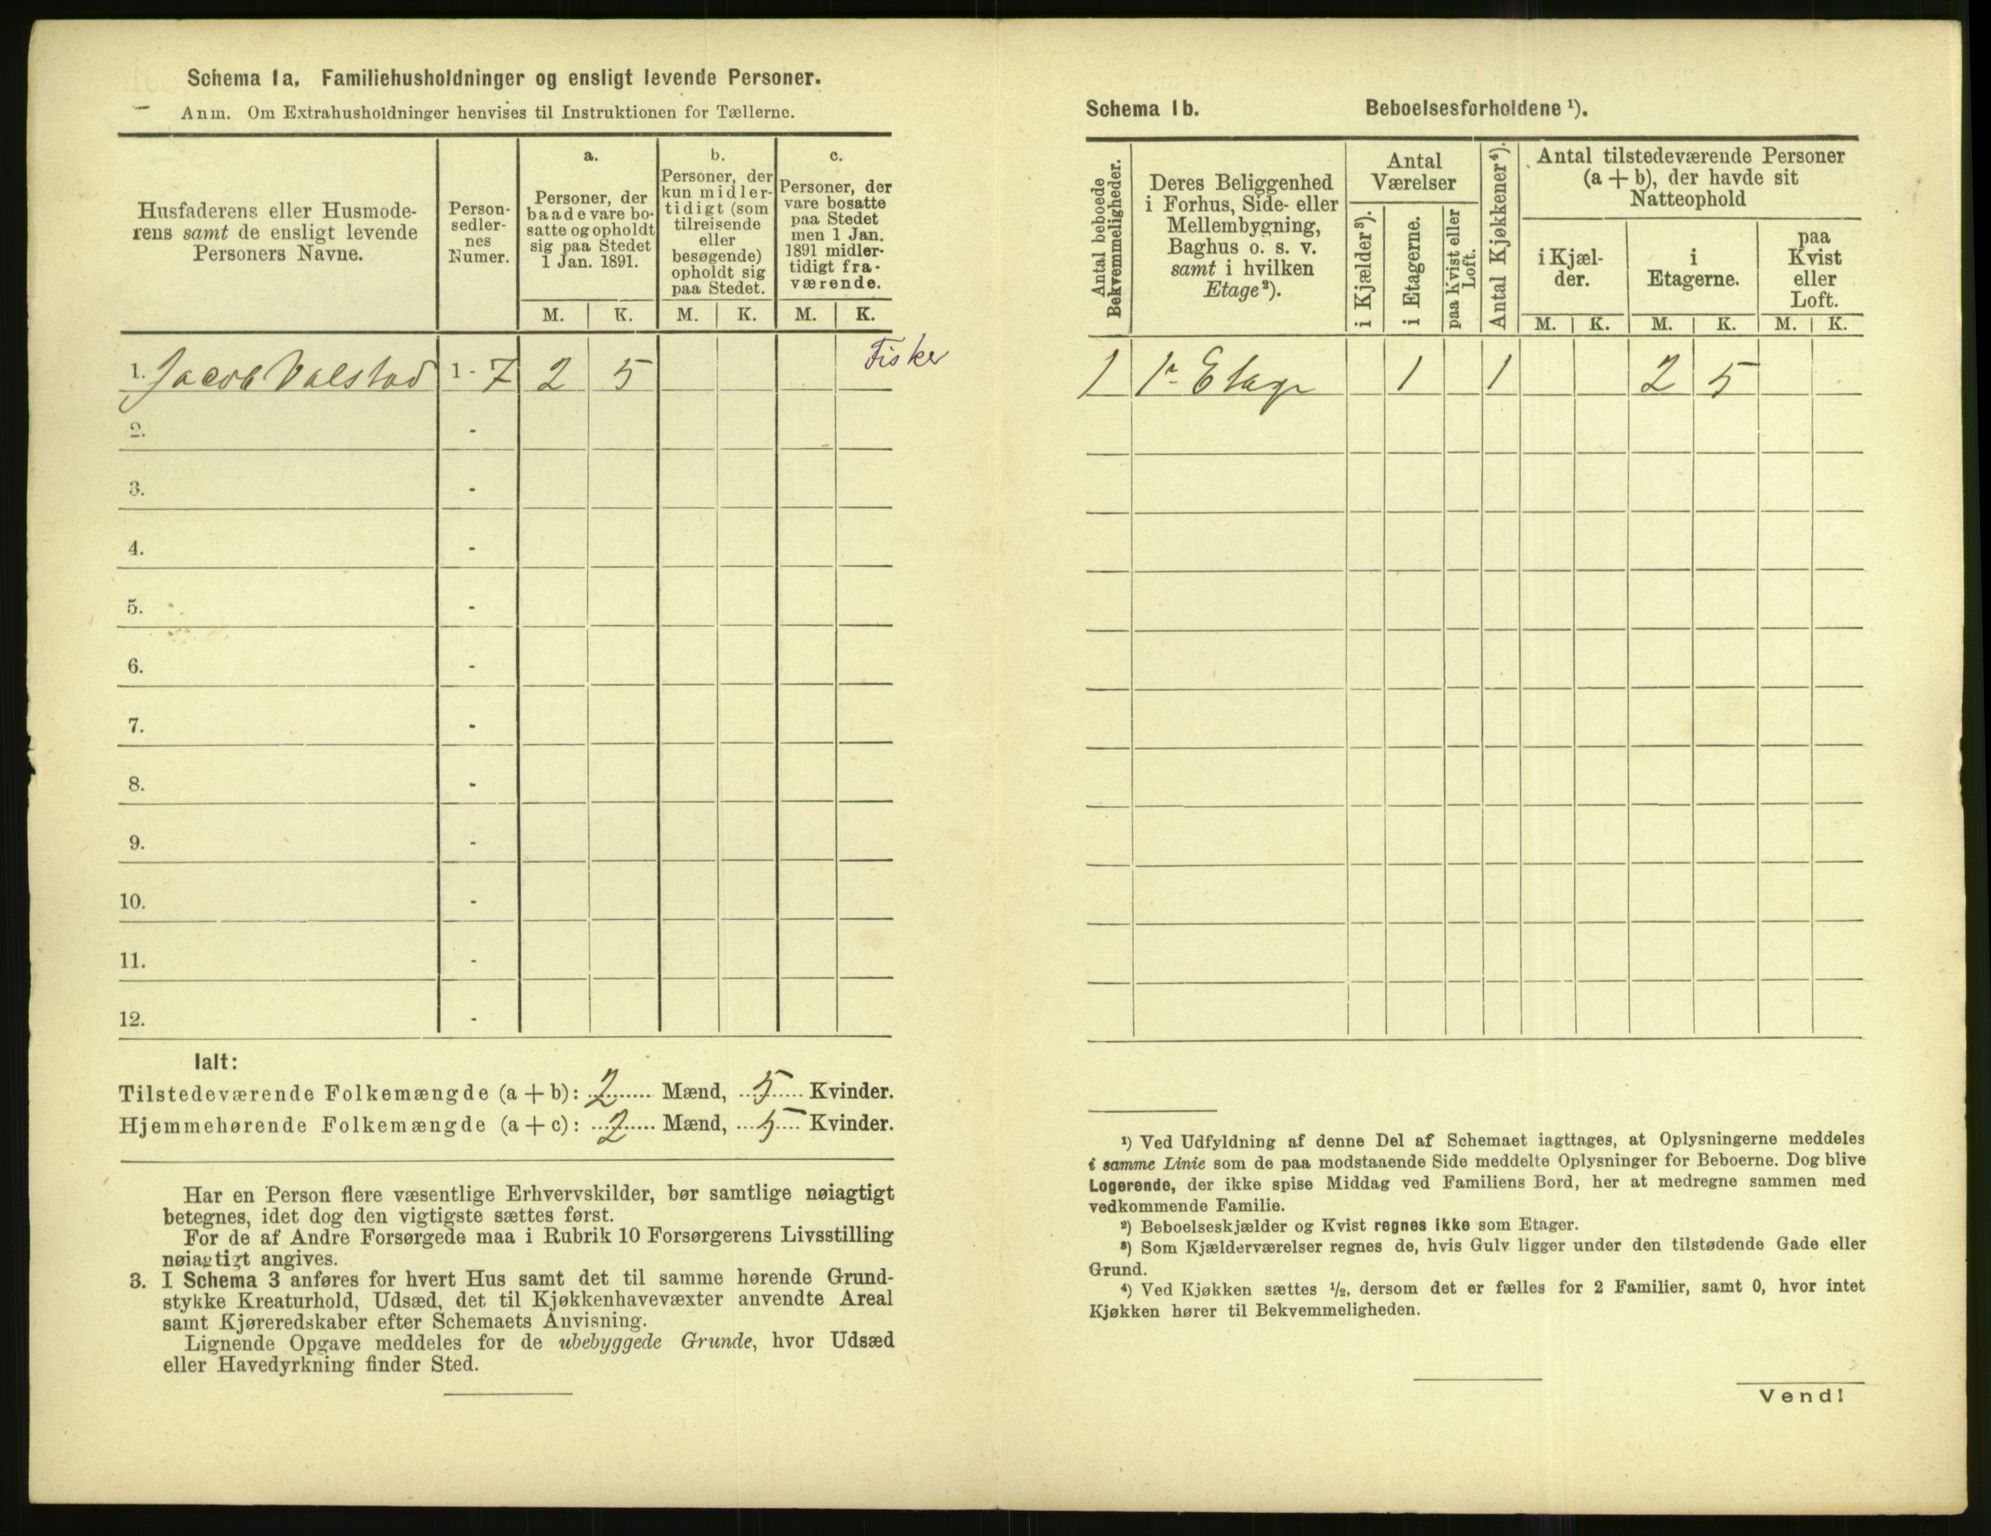 Schema 1a. Familiehusholdninger og ensligt levende Personer.
Anm. Om Extrahusholdninger henvises til Instruktionen for Tællerne.
Husfaderens eller Husmode-
rens samt de ensligt levende
Personers Navne.
Person-
sedler-
nes
Numer.
a.
Personer, der
baade vare bo-
satte og opholdt
sig paa Stedet
1 Jan. 1891.
b.
Personer, der
kun midler-
tidigt (som
tilreisende
eller
besøgende)
opholdt sig
paa Stedet.
c.
Personer, der
vare bosatte
paa Stedet
men 1 Jan.
1891 midler-
tidigt fra-
værende.
M. K. M. K. M. K.
Fisker
1. Jacob Valstad 1 - 7 2 5
2. -
3. -
4. -
5. -
6. -
7. -
8. -
9. -
10. -
11. -
12. -
Ialt:
Tilstedeværende Folkemængde (a + b): 2 Mænd, 5 Kvinder.
Hjemmehørende Folkemængde (a + c): 2 Mænd, 5 Kvinder.
Har en Person flere væsentlige Erhvervskilder, bør samtlige nøiagtigt
betegnes, idet dog den vigtigste sættes først.
For de af Andre Forsørgede maa i Rubrik 10 Forsørgerens Livsstilling
nøiagtigt angives.
3. I Schema 3 anføres for hvert Hus samt det til samme hørende Grund-
stykke Kreaturhold, Udsæd, det til Kjøkkenhavevæxter anvendte Areal
samt Kjøreredskaber efter Schemaets Anvisning.
Lignende Opgave meddeles for de ubebyggede Grunde, hvor Udsæd
eller Havedyrkning finder Sted.
Schema 1b. Beboelsesforholdene ¹).
Antal beboede
Bekvemmeligheder.
Deres Beliggenhed
i Forhus, Side- eller
Mellembygning,
Baghus o. s. v.
samt i hvilken
Etage²).
Antal
Værelser
i Kjælder³).
i Etagerne.
paa Kvist eller
Loft.
Antal Kjøkkener⁴).
Antal tilstedeværende Personer
(a + b), der havde sit
Natteophold
i Kjæl-
der.
i
Etagerne.
paa
Kvist
eller
Loft.
M. K. M. K. M. K.
1 1ste Etage 1 1 2 5
¹) Ved Udfyldning af denne Del af Schemaet iagttages, at Oplysningerne meddeles
i samme Linie som de paa modstaaende Side meddelte Oplysninger for Beboerne. Dog blive
Logerende, der ikke spise Middag ved Familiens Bord, her at medregne sammen med
vedkommende Familie.
²) Beboelseskjælder og Kvist regnes ikke som Etager.
³) Som Kjælderværelser regnes de, hvis Gulv ligger under den tilstødende Gade eller
Grund.
⁴) Ved Kjøkken sættes ½, dersom det er fælles for 2 Familier, samt 0, hvor intet
Kjøkken hører til Bekvemmeligheden.
Vend!